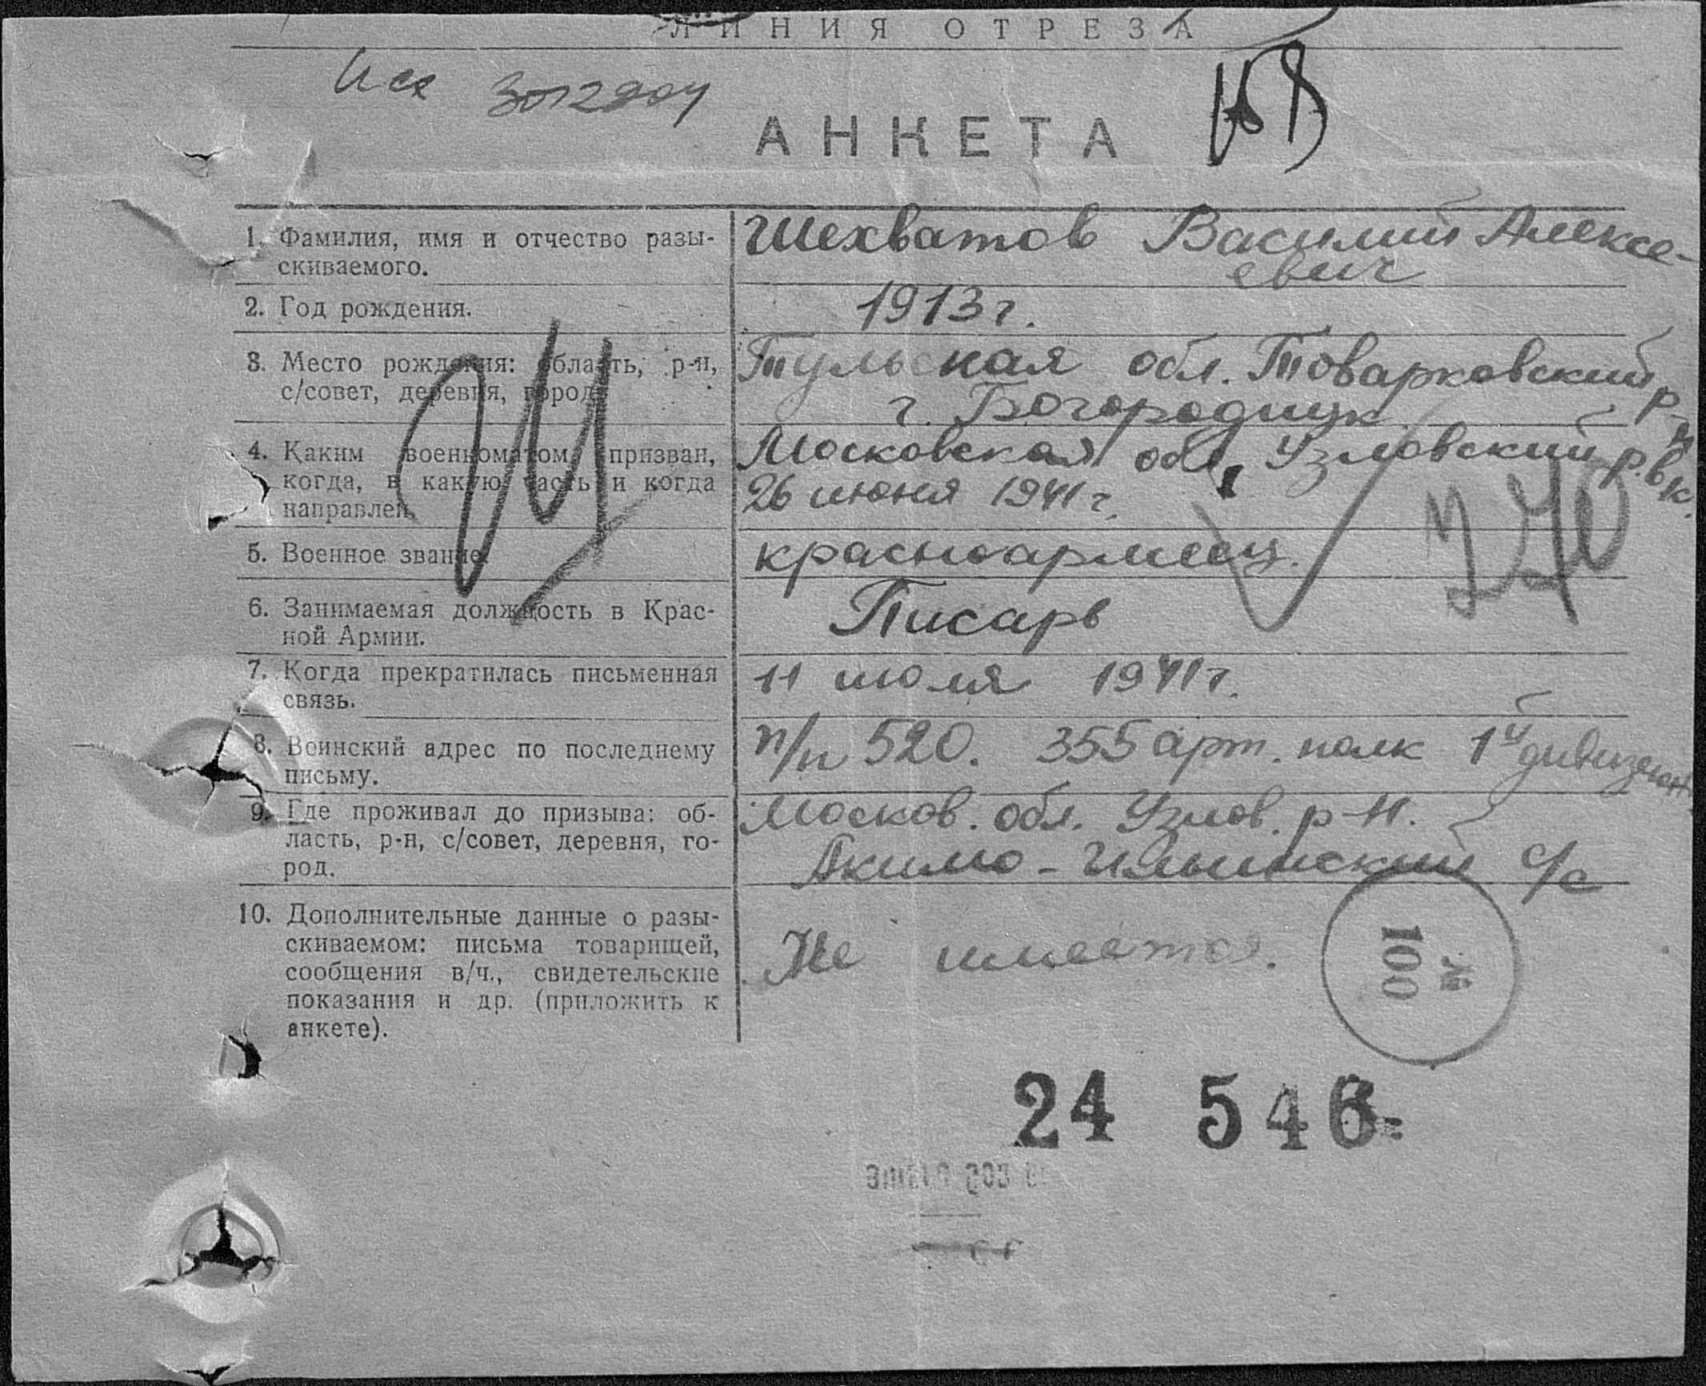 ЛИНИЯ ОТРЕЗА
Исх 3012904
АНКЕТА
1. Фамилия, имя и отчество разы-
скиваемого.
Шехватов Василий Алексе-
евич
2. Год рождения.
1913 г.
3. Место рождения: область, р-н,
с/совет, деревня, город.
Тульская обл. Товарковский р-н
г. Богородицк
4. Каким военкоматом призван,
когда, в какую часть и когда
направлен.
Московская обл. Узловский р.в.к.
26 июня 1941 г.
5. Военное звание.
красноармеец.
6. Занимаемая должность в Крас-
ной Армии.
Писарь
7. Когда прекратилась письменная
связь.
11 июля 1941 г.
8. Воинский адрес по последнему
письму.
п/п 520. 355 арт. полк 1й дивизион.
9. Где проживал до призыва: об-
ласть, р-н, с/совет, деревня, го-
род.
Москов. обл. Узлов. р-н.
Акимо-Ильинский с/с
10. Дополнительные данные о разы-
скиваемом: письма товарищей,
сообщения в/ч., свидетельские
показания и др. (приложить к
анкете).
Не имеется.
№
100
24 546